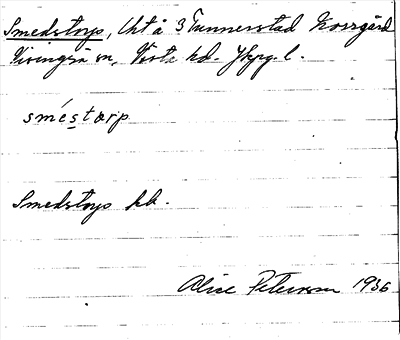 Smedstorp, lht å 3 Tunnerstad Korsgård
Visingsö sn, Vista hd. Jkpg. l.
smés̱tarp
Smedstorp hb.
Alice Petersson 1936